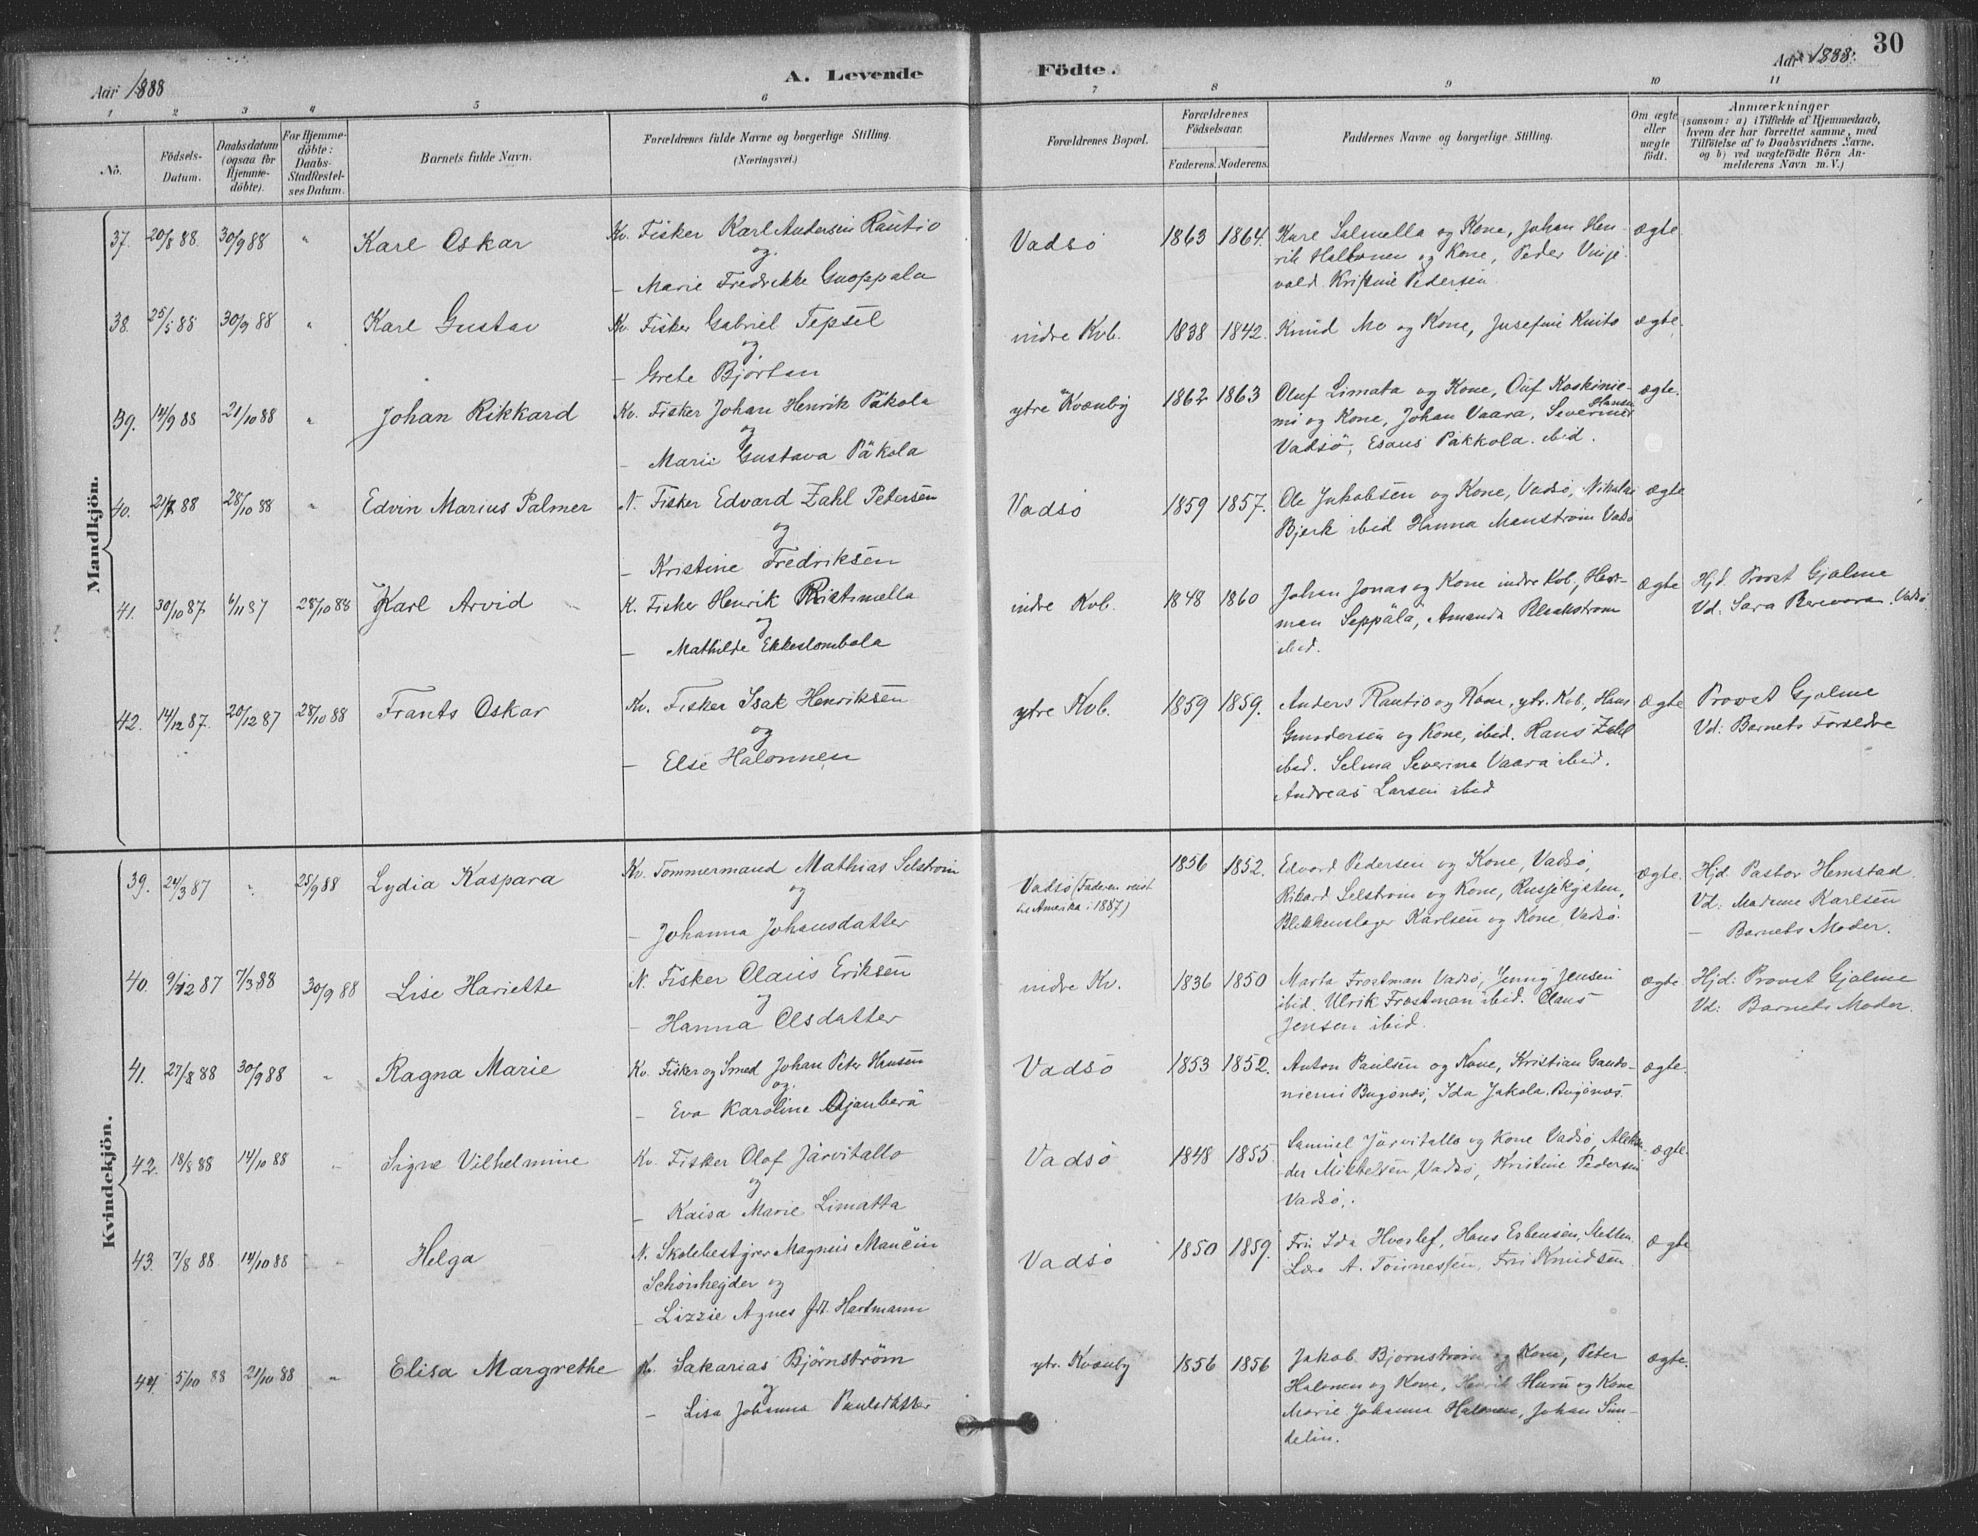 Aar 1888
A. Levende Födte.
Aar 1888.
30
1 2 3 4 5 6 7 8 9 10 11
No.
Födsels-Datum.
Daabsdatum (ogsaa for Hjemme-döbte).
For Hjemme-döbte: Daabs-Stadfestel-ses Datum.
Barnets fulde Navn.
Forældrenes fulde Navne og borgerlige Stilling.
(Næringsvei.)
Forældrenes Bopæl.
Forældrenes Fødselsaar.
Faderens. Moderens.
Faddernes Navne og borgerlige Stilling.
Om ægte eller uægte födt.
Anmærkninger
(saasom: a) i Tilfælde af Hjemmedaab,
hvem der har forrettet samme, med
Tilföielse af to Daabsvidners Navne.
og b) ved uægtefödte Börn An-
melderens Navn m. V.)
Mandkjön.
37. 20/8 88. 30/9 88 " Karl Oskar Kv. Fisker Karl Andersen Rautio Vadsö 1863 1864. Kone, Johan Hen- ægte
og rik Haltonen og Kone, Peder
– Marie Fredrikke Kristine Pedersen
38. 25/5 88 30/9 88 " Karl Gustav Kv. Fisker Gabriel Tepsel indre Kvb. 1838 1842. Knud Mo og Kone, Josefine ægte.
og
– Grete Bjortan
39. 14/9 88 21/10 88 " Johan Rikkard Kv. Fisker Johan Henrik Päkola ytre Kvænby 1862 1863 Oluf Limata og Kone, Koskinie- ægte.
og mi og Kone, Johan Vaara, Severine Hansen
– Marie Gustava Päkola Vadsö, Esaus Pakkola ibid.
40. 21/7 88 28/10 88 " Edvin Marius Palmer N. Fisker Edvard Zahl Petersen Vadsö 1859 1857. Ole Jakobsen og Kone, Vadsö, Nikolai ægte
og Bjerk ibid Hanna Manström Vadsö
– Kristine Fredriksen
41. 30/10 87. 6/11 87 28/10 88 Karl Arvid K. Fisker Henrik Ristimella indre Kvb. 1848 1860 Johan Jonas og Kone indre Kvb., Her- ægte Hjd. Provst Gjølme
og man Seppälä, Amanda Blankstrom Vd. Sara Vadsö
– Mathilde Ekkeslombola ibid.
42. 14/12 87. 20/12 87 28/10 88 Frants Oskar Kv. Fisker Isak Henriksen ytre Kvb. 1859 1859. Anders Rautio og Kone, ytr. Kvb., Hans ægte Provst Gjølme
og og Kone, ibid. Hans Zahl Vd: Barnets Foreldre
– Else Halonnen ibid. Selma Severine Vaara ibid.
Andreas Larsen ibid
Kvindekjön.
39. 24/3 87 " 25/9 88 Lydia Kaspara Kv. Tømmermand Mathias Selström Vadsö (Faderen reist 1856 1852. Edvard Pedersen og Kone, Vadsö, ægte. Hjd. Pastor Hemstad
og til Amerika i 1887) Rikard Selström og Kone, Vd: Madame Karlsen
– Johanna Johansdatter Blikkenslager Karlsen og Kone Vadsö. – Barnets Moder.
40. 9/12 87 7/3 88 30/9 88 Lise Hariette N. Fisker Olaus Eriksen indre Kv. 1836 1850 Marta Frostman Vadsö, Jenny Jensen ægte Hjd: Provst Gjølme
og ibid. Ulrik Frostman ibid. Olaus Vd: Barnets Moder.
– Hanna Olsdatter Jensen ibid.
41. 27/8 88 30/9 88 " Ragna Marie Kv. Fisker og Smed Johan Peter Hansen Vadsö 1853 1852. Anton Paulsen og Kone, Kristian ægte.
og niemi Bugönæs, Ida Jakola Bugönæs
– Eva Karoline
42. 18/8 88 14/10 88 " Signe Vilhelmine Kv. Fisker Olof Järvitallo Vadsö 1848 1855 Samuel Järvitallo og Kone Vadsö, Aleksan- ægte
og der Mikkelsen Vadsö, Kristine Pedersen
– Kaisa Marie Limatta Vadsö.
43. 7/8 88 14/10 88 " Helga N. Skolebestyrer Magnus Mancin Vadsö 1850 1859. Fru Ida Hvoslef, Hans Esbensen, ægte
Schönheyder og A. Fru Knudsen
– Lizzie Agnes f. Hartmann
44. 5/10 88 21/10 88 " Elisa Margrethe Kv. Sakarias Björnström ytr. Kvænby 1856 1856 Jakob Björnström og Kone, Peter ægte.
og Halonen og Kone, Henrik Huru og Kone
– Lisa Johanna Paulsdatter Marie Johanna Halonen, Johan Sun-
delin.